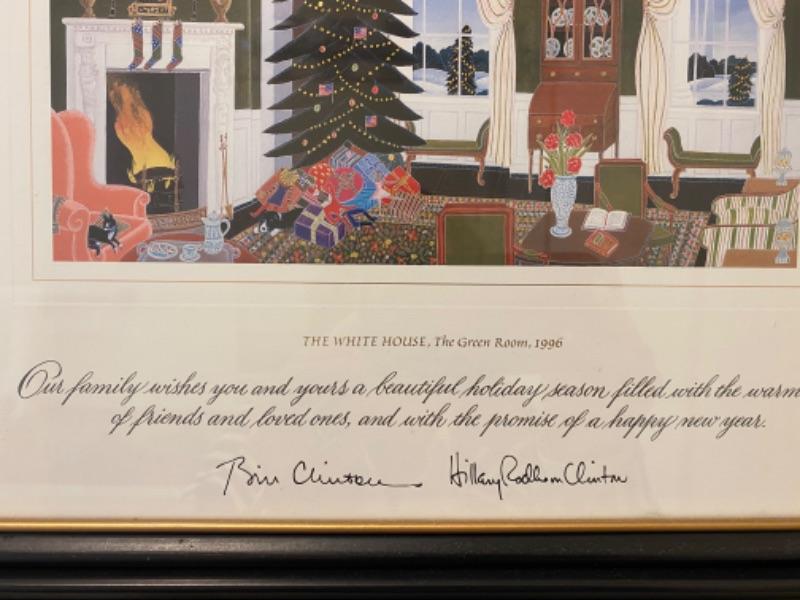 THE WHITE HOUSE, The Green Room, 1996
Our family wishes you and yours a beautiful holiday season filled with the warm
of friends and loved ones, and with the promise of a happy new year.
Bill Clinton Hillary Rodham Clinton